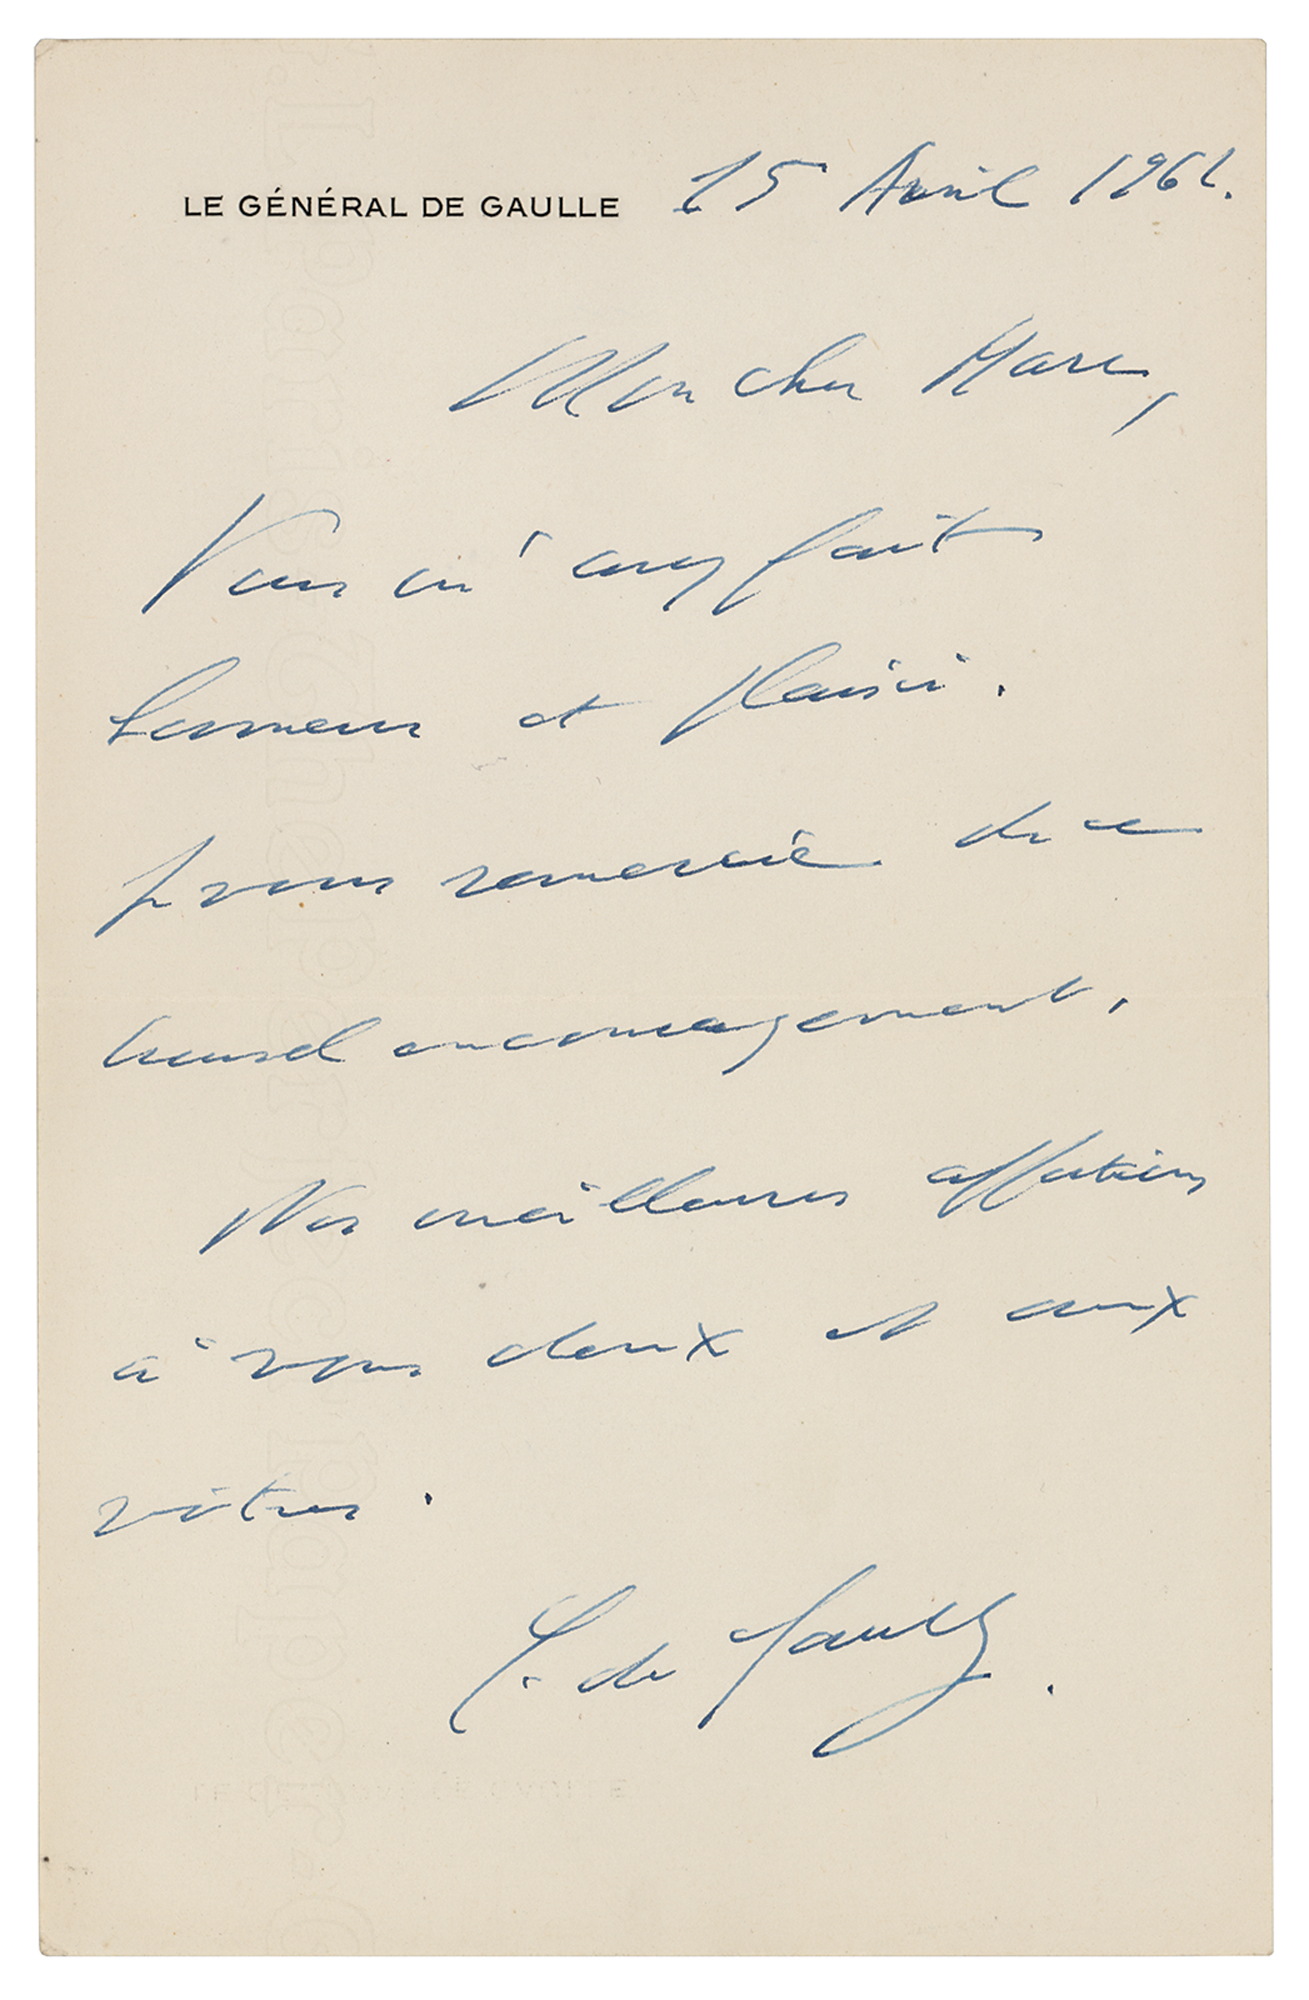 LE GÉNÉRAL DE GAULLE 15 Avril 1961.
Mon cher Marc,
Vous m'avez fait
honneur et plaisir.
Je vous remercie de ce
nouvel encouragement.
Nos meilleures affections
à vous deux et aux
vôtres.
C. de Gaulle.